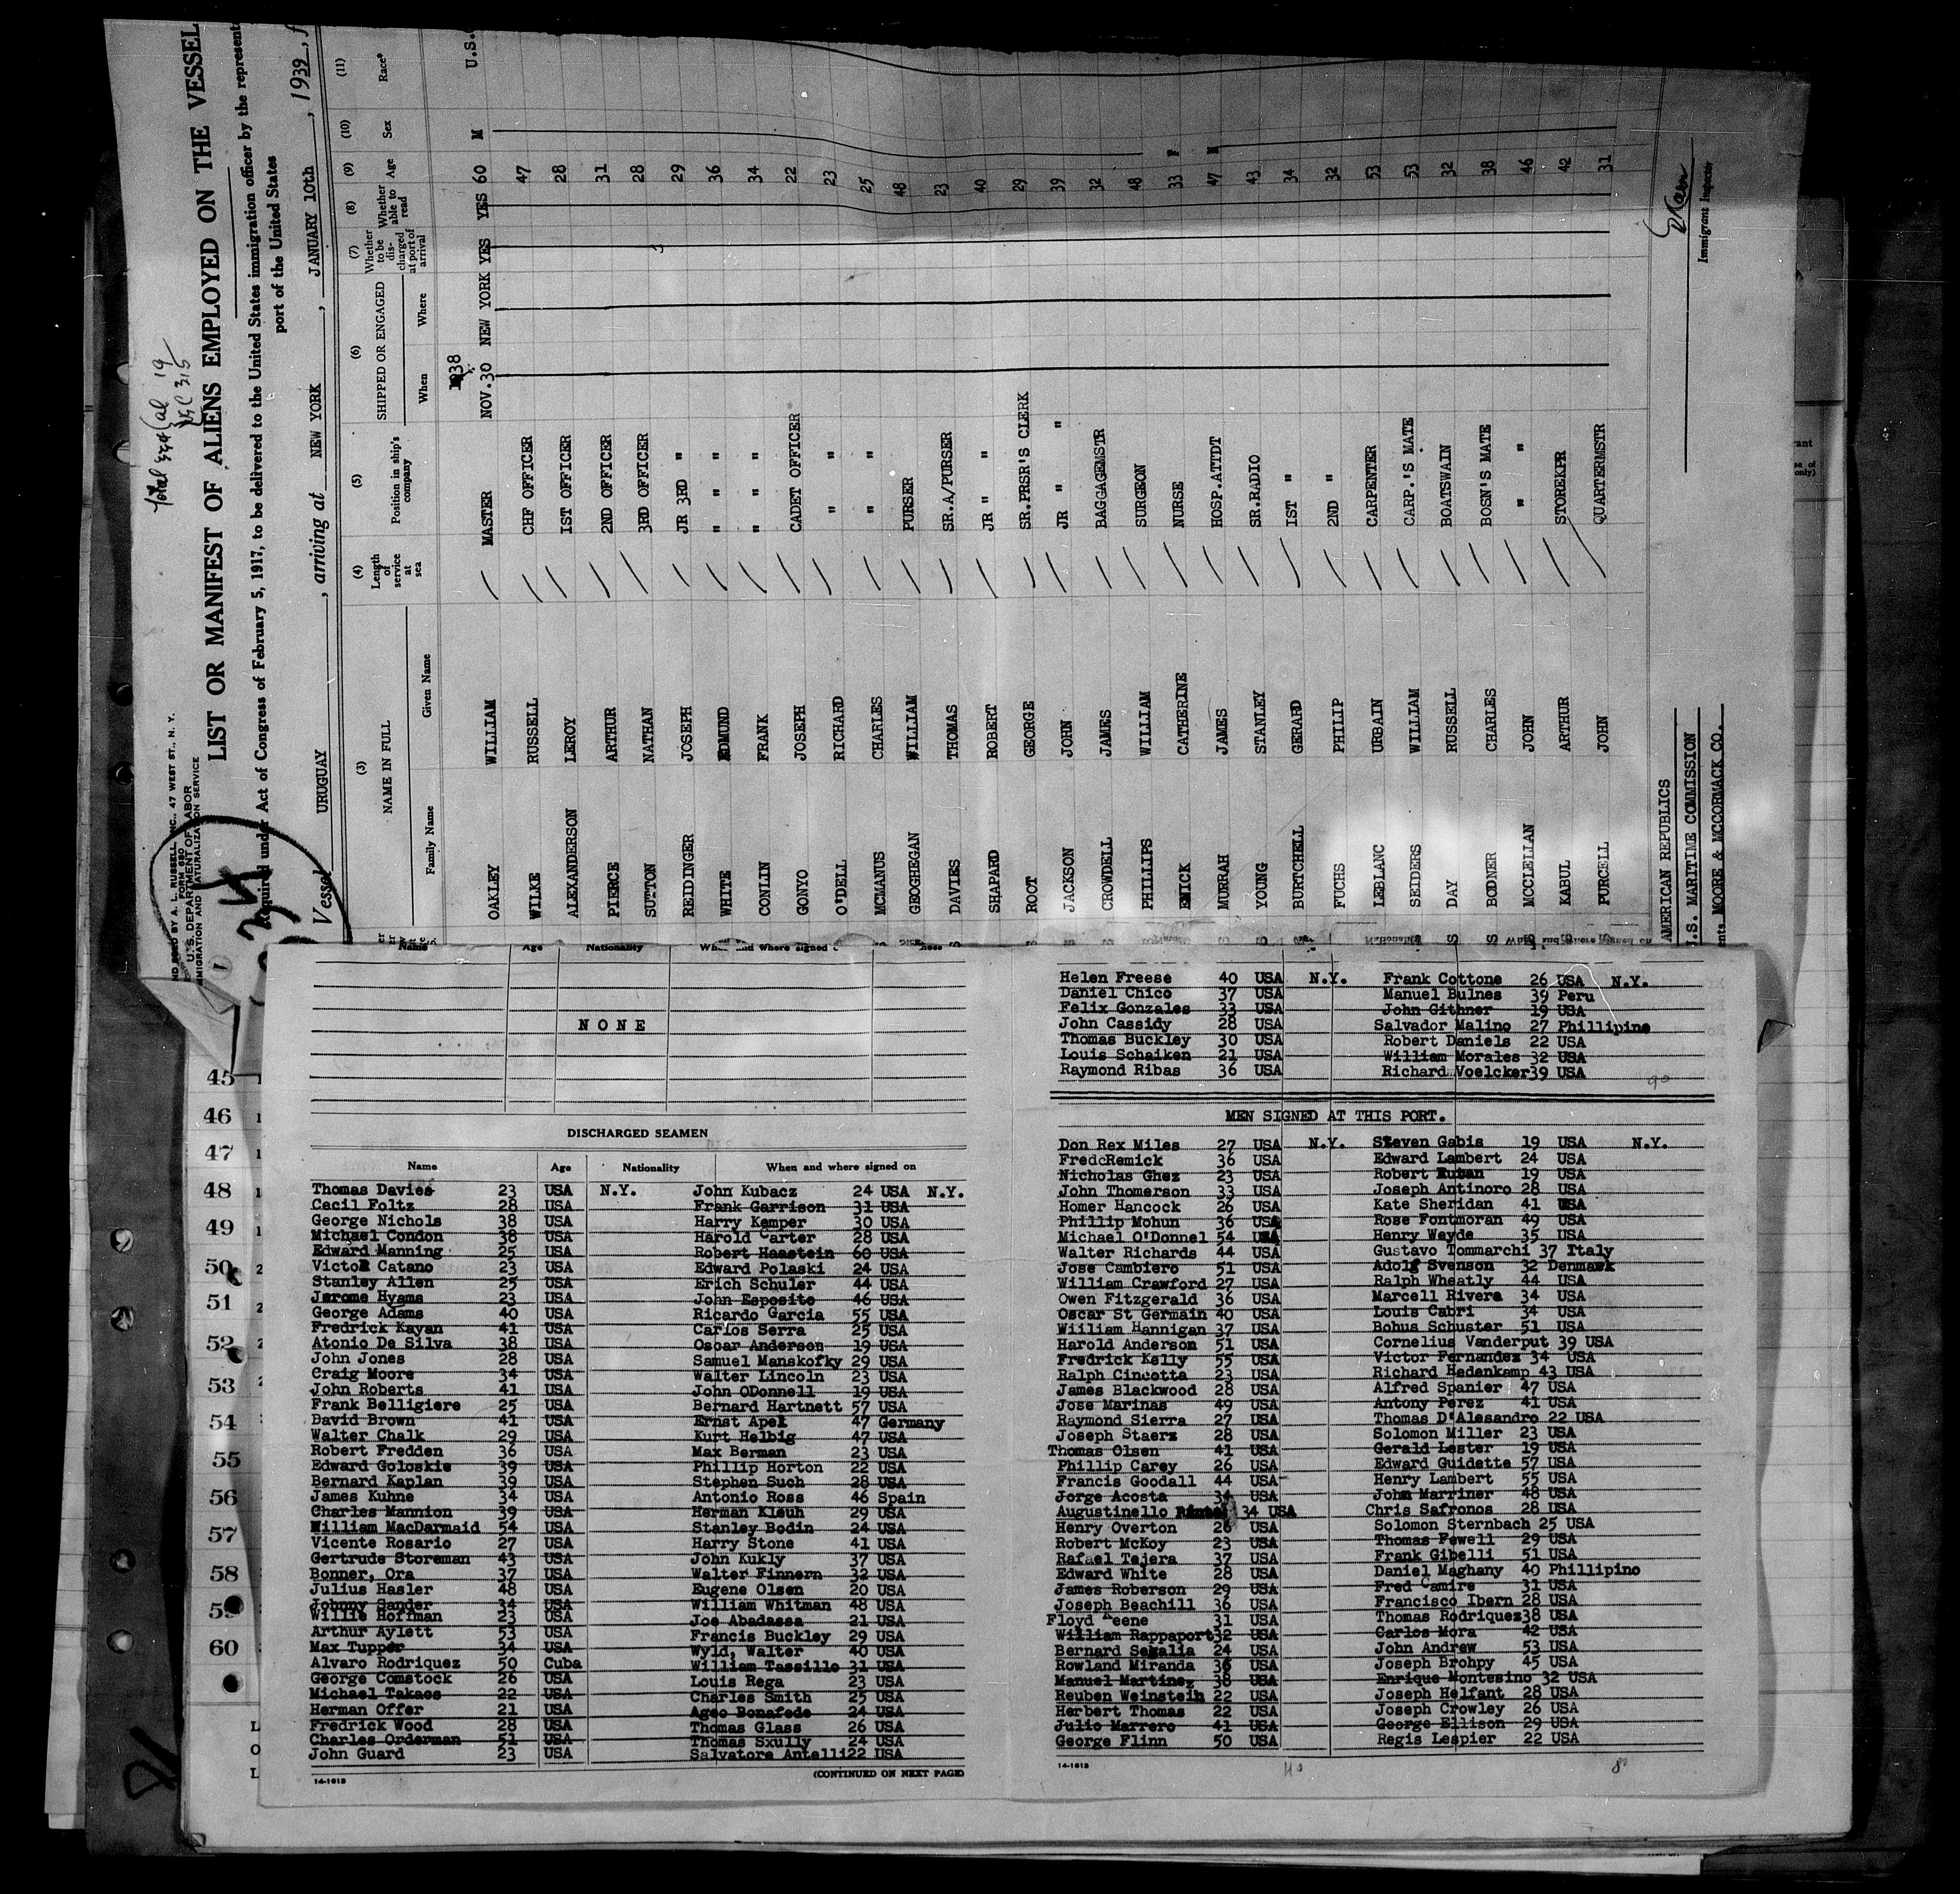 Total 334 { al 19
USC 315
ND SOLD BY A. L. RUSSELL, INC., 47 WEST ST., N. Y.
FORM 680
U. S. DEPARTMENT OF LABOR
MIGRATION AND NATURALIZATION SERVICE
LIST OR MANIFEST OF ALIENS EMPLOYED ON THE VESSEL
Required under Act of Congress of February 5, 1917, to be delivered to the United States immigration officer by the represent
port of the United States
Vessel URUGUAY, arriving at NEW YORK, JANUARY 10th, 1939, f
(3) (4) (5) (6) (7) (8) (9) (10) (11)
NAME IN FULL Length of service at sea Position in ship's company SHIPPED OR ENGAGED Whether to be discharged at port of arrival Whether able to read Age Sex Race*
Family Name Given Name When Where
1938
OAKLEY WILLIAM MASTER NOV.30 NEW YORK YES YES 60 M U.S.
WILKE RUSSELL CHF OFFICER 47
ALEXANDERSON LEROY IST OFFICER 28
PIERCE ARTHUR 2ND OFFICER 31
SUTTON NATHAN 3RD OFFICER 28
REIDINGER JOSEPH JR 3RD " 29
WHITE EDMUND " " 36
CONLIN FRANK " " 34
GONYO JOSEPH CADET OFFICER 22
O'DELL RICHARD " " 23
MCMANUS CHARLES " " 25
GEOGHEGAN WILLIAM PURSER 48
DAVIES THOMAS SR.A/PURSER 23
SHAPARD ROBERT JR " " 40
ROOT GEORGE SR.PRSR'S CLERK 29
JACKSON JOHN JR " " 39
CROWDELL JAMES BAGGAGEMSTR 32
PHILLIPS WILLIAM SURGEON 48
EMICK CATHERINE NURSE 33 F
MURRAH JAMES HOSP.ATTDT 47 M
YOUNG STANLEY SR.RADIO 43
BURTCHELL GERARD IST " 34
FUCHS PHILIP 2ND " 32
LEBLANC URBAIN CARPENTER 53
SEIDERS WILLIAM CARP.'S MATE 53
DAY RUSSELL BOATSWAIN 32
BODNER CHARLES BOSN'S MATE 38
MCCLELLAN JOHN " " 46
KABUL ARTHUR STOREKPR 42
PURCELL JOHN QUARTERMSTR 31
AMERICAN REPUBLICS
U.S. MARITIME COMMISSION
nts MOORE & MCCORMACK CO.
Immigrant Inspector
45
46
47
48
49
50
51
52
53
54
55
56
57
58
59
60
Name Age Nationality When and where signed
NONE
DISCHARGED SEAMEN
Name Age Nationality When and where signed on
Thomas Davies 23 USA N.Y. John Kubacz 24 USA N.Y.
Cecil Foltz 28 USA Frank Garrison 31 USA
George Nichols 38 USA Harry Kemper 30 USA
Michael Condon 38 USA Harold Carter 28 USA
Edward Manning 25 USA Robert Haastein 60 USA
Victor Catano 23 USA Edward Polaski 24 USA
Stanley Allen 25 USA Erich Schuler 44 USA
Jerome Hyams 23 USA John Esposito 46 USA
George Adams 40 USA Ricardo Garcia 55 USA
Fredrick Kayan 41 USA Carlos Serra 25 USA
Atonio De Silva 38 USA Oscar Anderson 19 USA
John Jones 28 USA Samuel Manskofky 29 USA
Craig Moore 34 USA Walter Lincoln 23 USA
John Roberts 41 USA John ODonnell 19 USA
Frank Belligiere 25 USA Bernard Hartnett 57 USA
David Brown 41 USA Ernst Apel 47 Germany
Walter Chalk 29 USA Kurt Helbig 47 USA
Robert Fredden 36 USA Max Berman 23 USA
Edward Goloskie 39 USA Phillip Horton 22 USA
Bernard Kaplan 39 USA Stephen Such 28 USA
James Kuhne 34 USA Antonio Ross 46 Spain
Charles Mannion 39 USA Herman Kleuh 29 USA
William MacDarmaid 54 USA Stanley Bodin 24 USA
Vicente Rosario 27 USA Harry Stone 41 USA
Gertrude Storeman 43 USA John Kukly 37 USA
Bonner, Ora 37 USA Walter Finnern 32 USA
Julius Hasler 48 USA Eugene Olsen 20 USA
Johnny Sander 34 USA William Whitman 48 USA
Willie Hoffman 23 USA Joe Abadassa 21 USA
Arthur Aylett 53 USA Francis Buckley 29 USA
Max Tupper 34 USA Wyld, Walter 40 USA
Alvaro Rodriquez 50 Cuba William Tassillo 31 USA
George Comstock 26 USA Louis Rega 23 USA
Michael Takacs 22 USA Charles Smith 25 USA
Herman Offer 21 USA Ageo Bonafede 24 USA
Fredrick Wood 28 USA Thomas Glass 26 USA
Charles Orderman 51 USA Thomas Sxully 24 USA
John Guard 23 USA Salvatore Antelli 22 USA
14-1613 (CONTINUED ON NEXT PAGE)
Helen Freese 40 USA N.Y. Frank Cottone 26 USA N.Y.
Daniel Chico 37 USA Manuel Bulnes 39 Peru
Felix Gonzales 33 USA John Githner 19 USA
John Cassidy 28 USA Salvador Malino 27 Phillipine
Thomas Buckley 30 USA Robert Daniels 22 USA
Louis Schaiken 21 USA William Morales 32 USA
Raymond Ribas 36 USA Richard Voelcker 39 USA
90
MEN SIGNED AT THIS PORT.
Don Rex Miles 27 USA N.Y. Steven Gabis 19 USA N.Y.
FredcRemick 36 USA Edward Lambert 24 USA
Nicholas Ghez 23 USA Robert Ruban 19 USA
John Thomerson 33 USA Joseph Antinoro 28 USA
Homer Hancock 26 USA Kate Sheridan 41 USA
Phillip Mohun 36 USA Rose Fontmoran 49 USA
Michael O'Donnel 54 USA Henry Wayde 35 USA
Walter Richards 44 USA Gustavo Tommarchi 37 Italy
Jose Cambiero 51 USA Adolf Svenson 32 Denmark
William Crawford 27 USA Ralph Wheatly 44 USA
Owen Fitzgerald 36 USA Marcell Rivera 34 USA
Oscar St Germain 40 USA Louis Cabri 34 USA
William Hannigan 37 USA Bohus Schuster 51 USA
Harold Anderson 51 USA Cornelius Vanderput 39 USA
Fredrick Kelly 55 USA Victor Fernandez 34 USA
Ralph Cincotta 23 USA Richard Hedenkamp 43 USA
James Blackwood 28 USA Alfred Spanier 47 USA
Jose Marinas 49 USA Antony Perez 41 USA
Raymond Sierra 27 USA Thomas D'Alesandro 22 USA
Joseph Staerz 28 USA Solomon Miller 23 USA
Thomas Olsen 41 USA Gerald Lester 19 USA
Phillip Carey 26 USA Edward Guidette 57 USA
Francis Goodall 44 USA Henry Lambert 55 USA
Jorge Acosta 34 USA John Marriner 48 USA
Augustinello 34 USA Chris Safronos 28 USA
Henry Overton 26 USA Solomon Sternbach 25 USA
Robert McKoy 23 USA Thomas Fewell 29 USA
Rafael Tejera 37 USA Frank Gibelli 51 USA
Edward White 28 USA Daniel Maghany 40 Phillipino
James Roberson 29 USA Fred Camire 31 USA
Joseph Beachill 36 USA Francisco Ibern 28 USA
Floyd Keene 31 USA Thomas Rodriquez 38 USA
William Rappaport 32 USA Carlos Mora 42 USA
Bernard Segalia 24 USA John Andrew 53 USA
Rowland Miranda 36 USA Joseph Brohpy 45 USA
Manuel Martinez 38 USA Enrique Montesino 32 USA
Reuben Weinstein 22 USA Joseph Helfant 28 USA
Herbert Thomas 22 USA Joseph Crowley 26 USA
Julio Marrero 41 USA George Ellison 29 USA
George Flinn 50 USA Regis Lespier 22 USA
14-1613